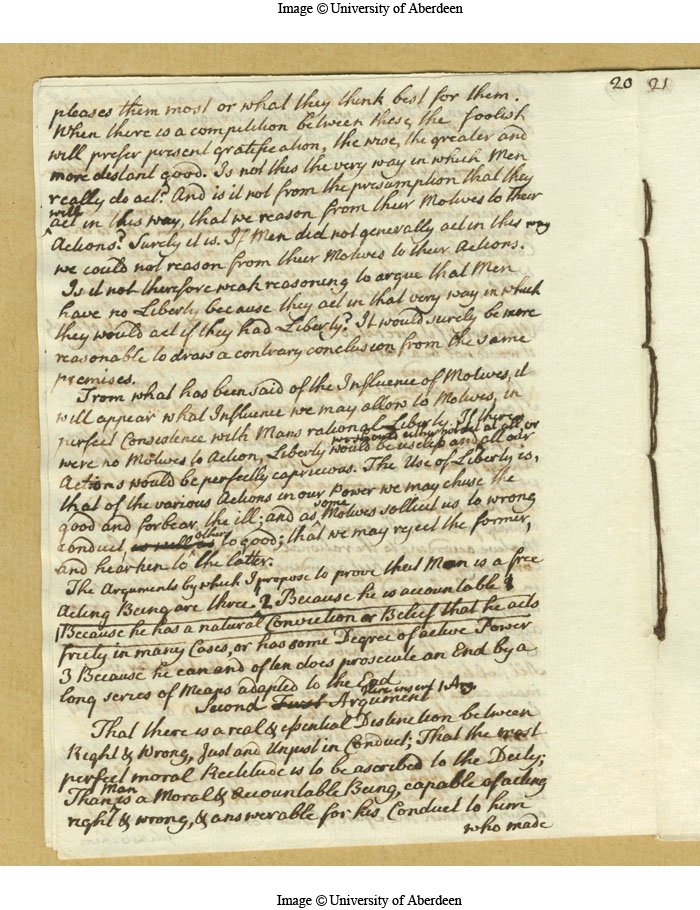 Image © University of Aberdeen
20 21
pleases them most or what they think best for them.
When there is a competition between these, the foolish
will prefer present gratification, the wise, the greater and
more distant good. Is not this the very way in which Men
really do act? And is it not from the presumption that they
will
act in this way, that we reason from their Motives to their
Actions? Surely it is. If Men did not generally act in this way
we could not reason from their Motives to their Actions.
Is it not therefore weak reasoning to argue that Men
have no Liberty because they act in that very way in which
they would act if they had Liberty? It would surely be more
reasonable to draw a contrary conclusion from the same
premises.
From what has been said of the Influence of Motives, it
will appear what Influence we may allow to Motives, in
perfect Consistence with Mans rational Liberty. If there
we should either not act at all, or
were no Motives to Action, Liberty would be useless and all our
Actions would be perfectly capricious. The Use of Liberty is,
that of the various Actions in our Power we may chuse the
good and forbear the ill; and as some Motives sollicit us to wrong
conduct, as well as others to good; that we may reject the former,
and hearken to the latter.
The Arguments by which I propose to prove that Man is a free
Acting Being are three. 2 Because he is accountable &
1 Because he has a natural Conviction or Belief that he acts
freely in many Cases, or has some Degree of active Power
3 Because he can and often does prosecute an End by a
long series of Means adapted to the End
Second First Argument here insert 1 Arg.
That there is a real & essential Distinction between
Right & Wrong, Just and Unjust in Conduct; That the most
perfect moral Rectitude is to be ascribed to the Deity;
Man
That is a Moral & Accountable Being, capable of acting
right & wrong, & answerable for his Conduct to him
who made
Image © University of Aberdeen